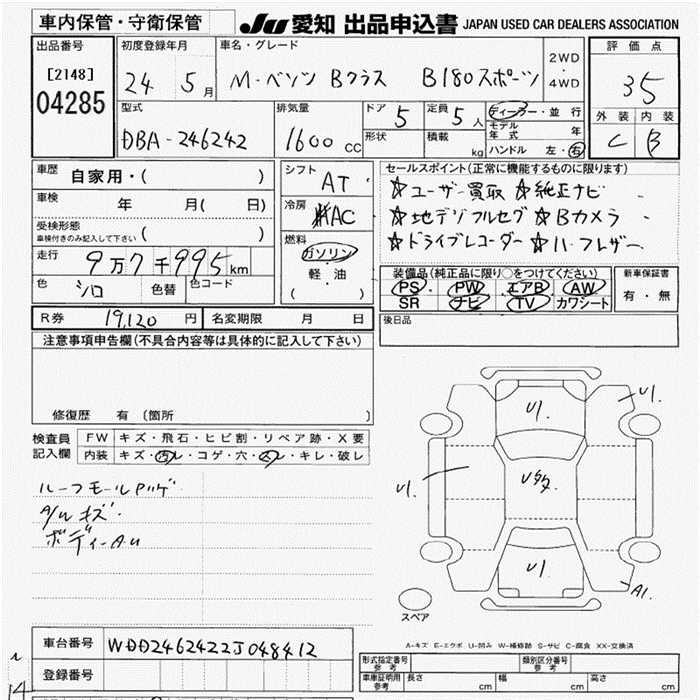 車内保管・守衛保管
JU 愛知 出品申込書 JAPAN USED CAR DEALERS ASSOCIATION
出品番号
[2148]
04285
初度登録年月
24 5 月
車名・グレード
M-ベンツ Bクラス B180スポーツ
2WD
・
4WD
評価点
35
外装 内装
C B
型式
DBA-246242
排気量
1600 CC
ドア 5
形状
定員 5 人
積載 kg
ディーラー・並行
モデル年式 年
ハンドル 左・右
車歴 自家用・( )
車検 年 月( 日)
受検形態
車検付きのみ記入して下さい ( )
走行
9万7千995km
色 シロ 色替 色コード
シフト
AT
冷房
AC
燃料
ガソリン
軽・油
( )
セールスポイント(正常に機能するものに限ります)
☆ユーザー買取 ☆純正ナビ
☆地デジフルセグ ☆Bカメラ
☆ドライブレコーダー ☆リーフレザー
装備品(純正品に限り○をつけてください)
PS PW エアB AW
SR ナビ TV カワシート
新車保証書
有・無
R券 19,120 円 名変期限 月 日
後日品
注意事項申告欄(不具合内容等は具体的に記入して下さい)
修復歴 有 〔箇所 〕
検査員
記入欄
FW キズ・飛石・ヒビ割・リペア跡・X要
内装 キズ・汚レ・コゲ・穴・スレ・キレ・破レ
ルーフモールハゲ
A/W キズ
ボディーA.U
U1.
U1.
U1.
U多
U1.
A1.
スペア
A-キズ E-エクボ U-凹み W-補修跡 S-サビ C-腐食 XX-交換済
車台番号 WDD2462422J048412
登録番号
形式指定番号
参考
類別区分番号
参考
車庫証明用
参考
長さ cm 幅 cm 高さ cm
14